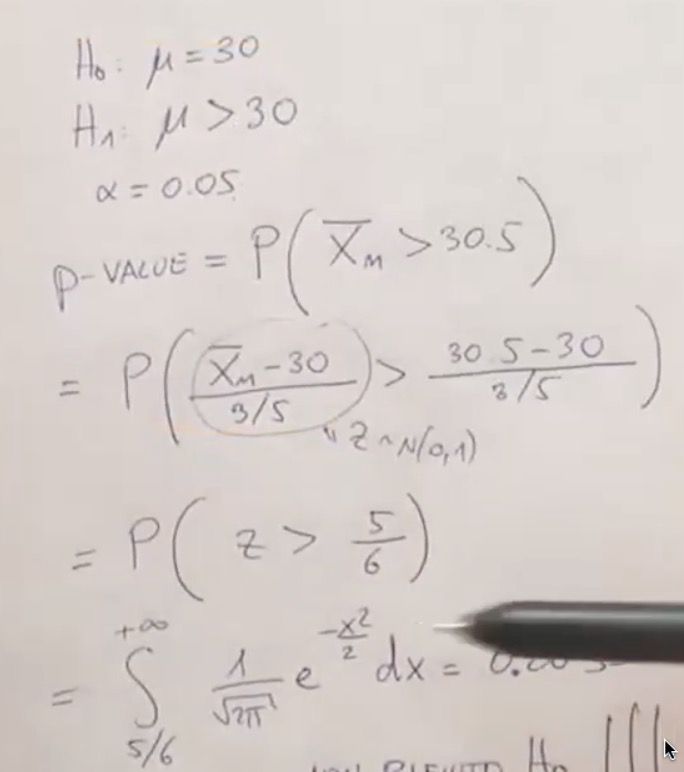 H₀: μ = 30
H₁: μ > 30
α = 0.05
P-VALUE = P( X̄ₘ > 30.5 )
= P( (X̄ₘ - 30)/(3/5) > (30.5 - 30)/(3/5) )
" Z ~ N(0,1)
= P( Z > 5/6 )
= ∫_{5/6}^{+∞} 1/√(2π) e^{-x²/2} dx =
H₀